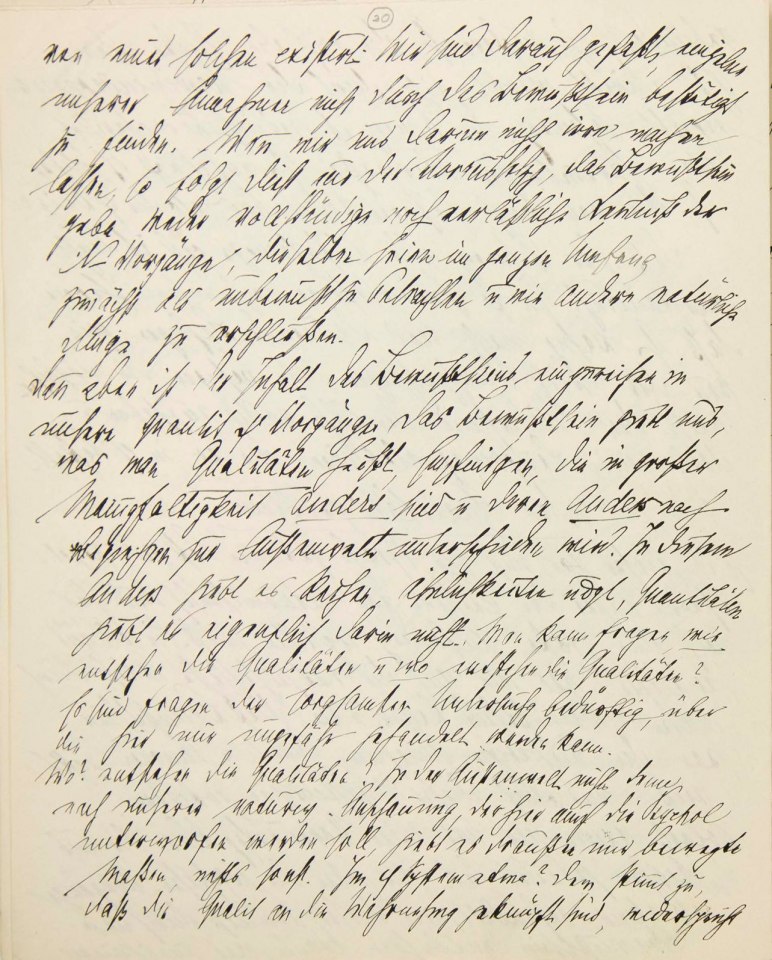 20
von einer solchen existirt. Wir sind darauf gefaßt, einzelne
unserer Annahmen nicht durch das Bewußtsein bestätigt
zu finden. Wenn wir uns darum nicht irre machen
lassen, so folgt dieß aus der Voraussetzg, das Bewußtsein
gebe weder vollständige noch verläßliche Kentniß der
N Vorgänge, dieselben seien im ganzen Umfang
zunächst als unbewußt zu betrachten u wie andere natürliche
Dinge zu erschließen.
Dann aber ist der Inhalt des Bewußtseins einzureihen in
unsere quantit ψ Vorgänge. Das Bewußtsein giebt uns,
was man Qualitäten heißt, Empfindgen, die in großer
Mannigfaltigkeit anders sind u deren Anders nach
Beziehgen zur Außenwelt unterschieden wird. In diesem
Anders giebt es Reihen, Ähnlichkeiten udgl, Quantitäten
giebt es eigentlich darin nicht. Man kann fragen, wie
entstehen die Qualitäten u wo entstehen die Qualitäten?
Es sind Fragen der sorgsamsten Untersuchg bedürftig, über
die hier nur ungefähr gehandelt werden kann.
Wo? entstehen die Qualitäten? In der Außenwelt nicht denn
nach unserer naturw. Anschauung, der hier auch die Psychol
unterworfen werden soll, giebt es draußen nur bewegte
Maßen, nichts sonst. Im φ System etwa? Dem stimmt zu,
daß die Qualit an die Wahrnehmg geknüpft sind, widerspricht